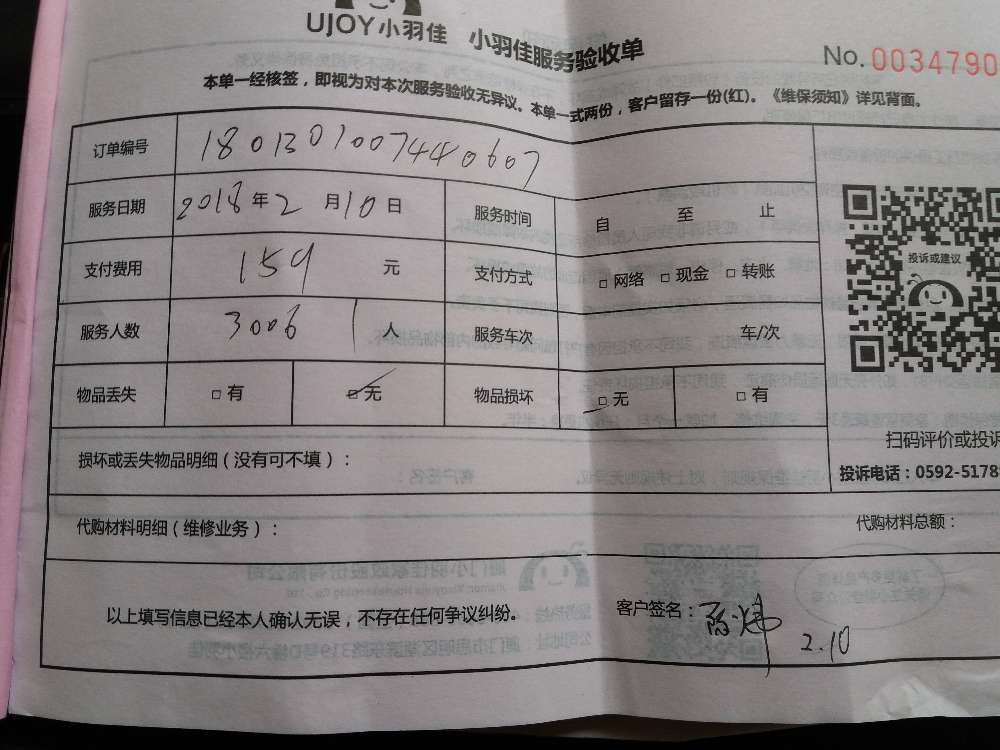 UJOY小羽佳 小羽佳服务验收单
No. 0034790
本单一经核签，即视为对本次服务验收无异议。本单一式两份，客户留存一份(红)。《维保须知》详见背面。
订单编号 18013010074440607
服务日期 2018年2月10日 服务时间 自 至 止
投诉或建议
支付费用 159 元 支付方式 □网络 □现金 □转账
服务人数 3006 1 人 服务车次 车/次
物品丢失 □有 □无 物品损坏 □无 □有
扫码评价或投诉
损坏或丢失物品明细（没有可不填）：
投诉电话：0592-5178
代购材料明细（维修业务）： 代购材料总额：
以上填写信息已经本人确认无误，不存在任何争议纠纷。 客户签名：
2.10